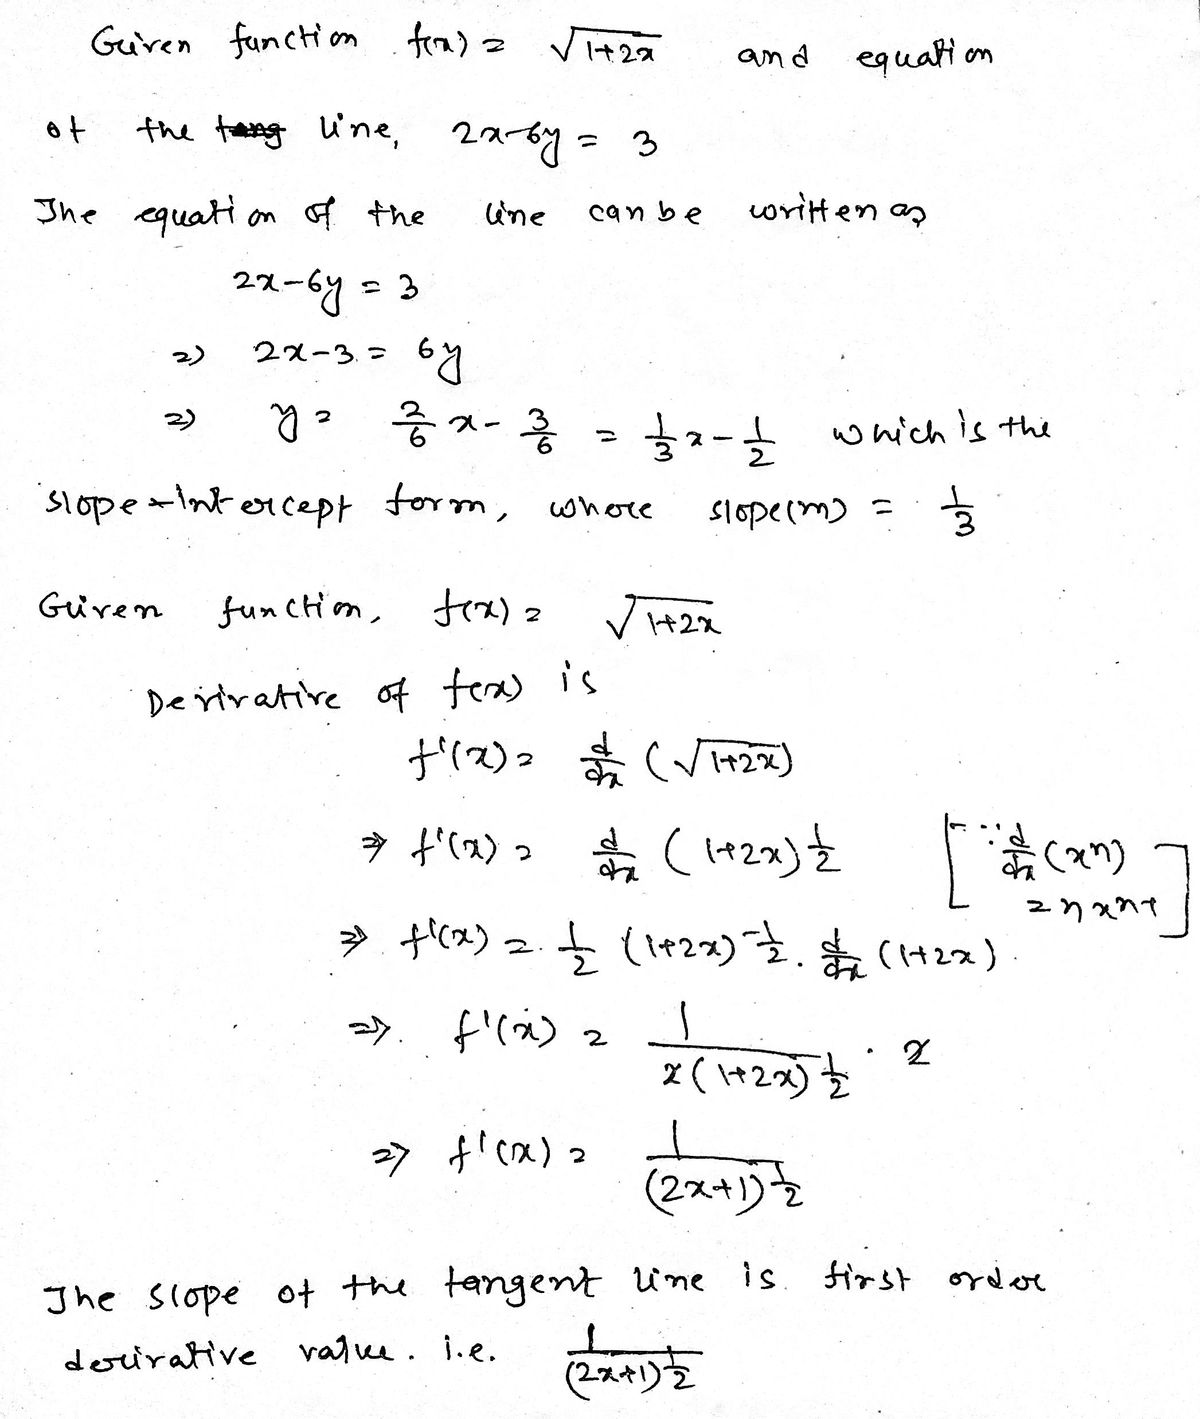 Given function f(x) = √1+2x and equation
of the tang line, 2x-6y = 3
The equation of the line can be written as
2x-6y = 3
=> 2x-3 = 6y
=> y = 2/6 x - 3/6 = 1/3 x - 1/2 which is the
slope-intercept form, where slope(m) = 1/3
Given function, f(x) = √1+2x
Derivative of f(x) is
f'(x) = d/dx (√1+2x)
=> f'(x) = d/dx (1+2x)^1/2 [∵ d/dx (x^n)
= n x^n-1]
=> f'(x) = 1/2 (1+2x)^-1/2 . d/dx (1+2x).
=> f'(x) = 1/2(1+2x)^1/2 . 2
=> f'(x) = 1/(2x+1)^1/2
The slope of the tangent line is first order
derivative value. i.e. 1/(2x+1)^1/2